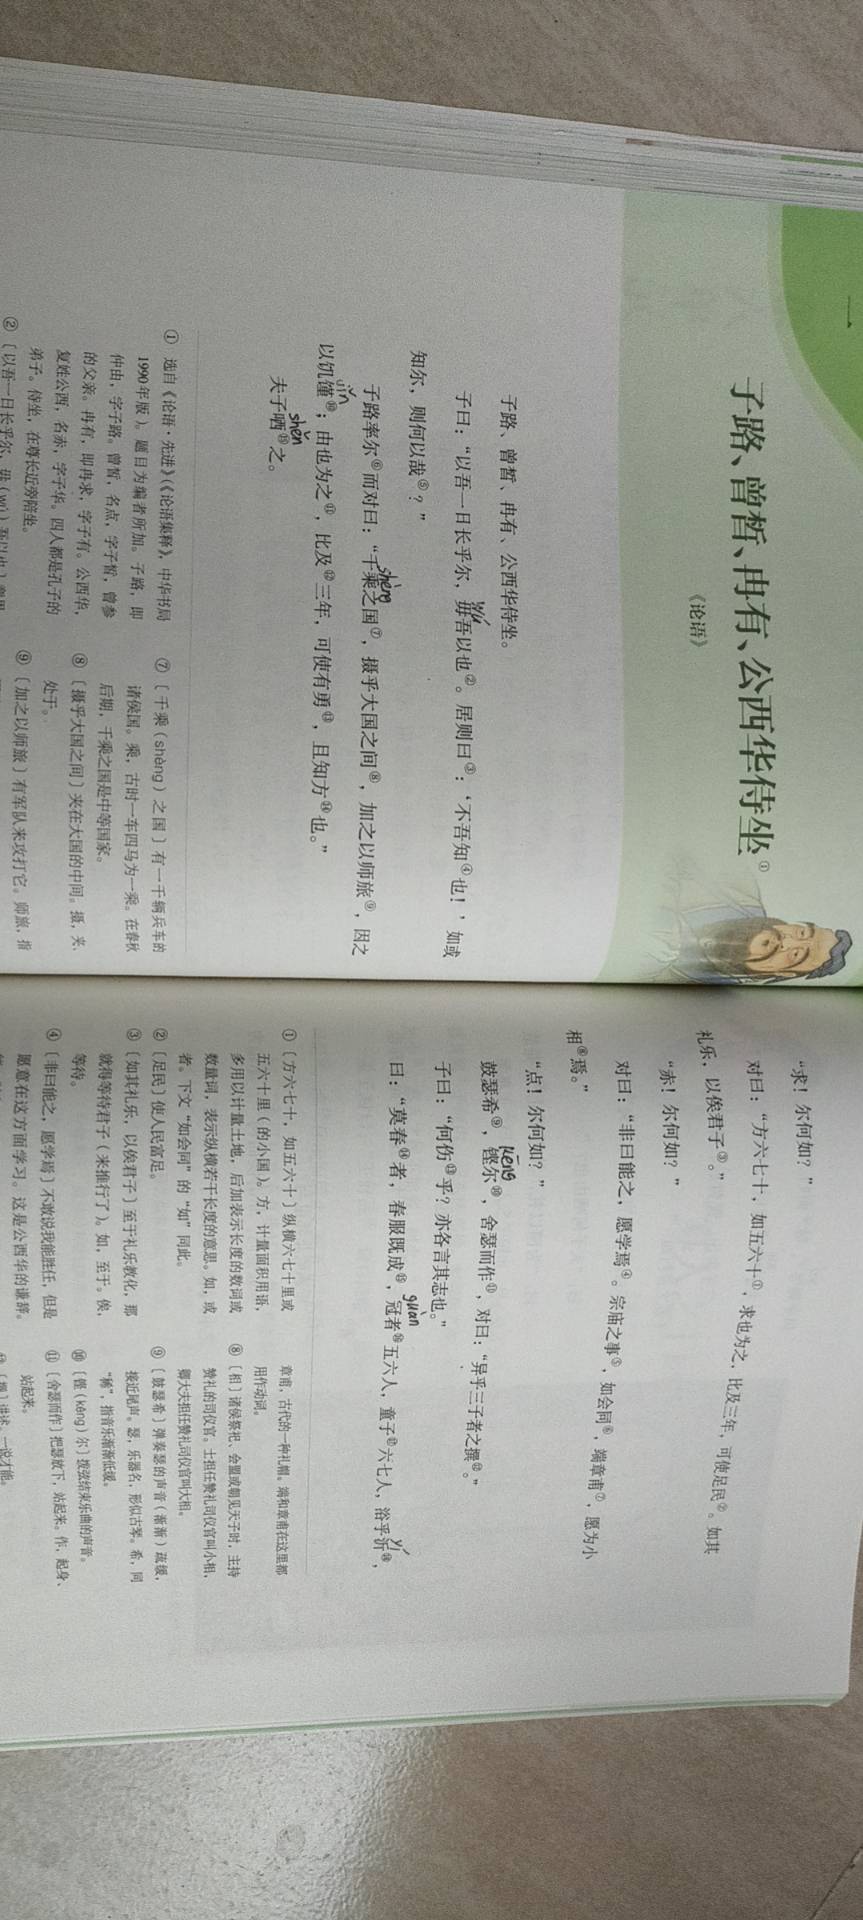 一
子路、曾皙、冉有、公西华侍坐①
《论语》
子路、曾皙、冉有、公西华侍坐。
子曰：“以吾一日长乎尔，毋吾以也②。居则曰③：‘不吾知④也！’如或
wú
知尔，则何以哉⑤？”
子路率尔⑥而对曰：“千乘之国⑦，摄乎大国之间⑧，加之以师旅⑨，因之
shèng
以饥馑⑩；由也为之⑪，比及⑫三年，可使有勇⑬，且知方⑭也。”
jǐn
夫子哂⑮之。
shěn
① 选自《论语·先进》（《论语集释》，中华书局
1990年版）。题目为编者所加。子路，即
仲由，字子路。曾皙，名点，字子皙，曾参
的父亲。冉有，即冉求，字子有。公西华，
复姓公西，名赤，字子华。四人都是孔子的
弟子。侍坐，在尊长近旁陪坐。
② 〔以吾一日长乎尔，毋（wú）吾以也〕
⑦ 〔千乘（shèng）之国〕有一千辆兵车的
诸侯国。乘，古时一车四马为一乘。在春秋
后期，千乘之国是中等国家。
⑧ 〔摄乎大国之间〕夹在大国的中间。摄，夹、
处于。
⑨ 〔加之以师旅〕有军队来攻打它。师旅，指
“求！尔何如？”
对曰：“方六七十，如五六十①，求也为之，比及三年，可使足民②。如其
礼乐，以俟君子③。”
“赤！尔何如？”
对曰：“非曰能之，愿学焉④。宗庙之事⑤，如会同⑥，端章甫⑦，愿为小
相⑧焉。”
“点！尔何如？”
鼓瑟希⑨，铿尔⑩，舍瑟而作⑪，对曰：“异乎三子者之撰⑫。”
kēng
子曰：“何伤⑬乎？亦各言其志也。”
曰：“莫春⑭者，春服既成⑮，冠者⑯五六人，童子⑰六七人，浴乎沂⑱，
guàn
yí
① 〔方六七十，如五六十〕纵横六七十里或
五六十里（的小国）。方，计量面积用语，
多用以计量土地，后加表示长度的数词或
数量词，表示纵横若干长度的意思。如，或
者。下文“如会同”的“如”同此。
② 〔足民〕使人民富足。
③ 〔如其礼乐，以俟君子〕至于礼乐教化，那
就得等待君子（来推行了）。如，至于。俟，
等待。
④ 〔非曰能之，愿学焉〕不敢说我能胜任，但是
愿意在这方面学习。这是公西华的谦辞。
章甫，古代的一种礼帽。端和章甫在这里都
用作动词。
⑧ 〔相〕诸侯祭祀、会盟或朝见天子时，主持
赞礼的司仪官。士担任赞礼司仪官叫小相，
卿大夫担任赞礼司仪官叫大相。
⑨ 〔鼓瑟希〕弹奏瑟的声音（渐渐）疏缓，
接近尾声。瑟，乐器名，形似古琴。希，同
“稀”，指音乐渐渐低缓。
⑩ 〔铿（kēng）尔〕拨弦结束乐曲的声音。
⑪ 〔舍瑟而作〕把瑟放下，站起来。作，起身、
站起来。
⑫ 〔撰〕讲述。一说才能。